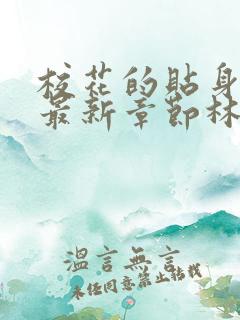 校花的貼身
最新章節林
溫言無言
未任同意禁止轉載